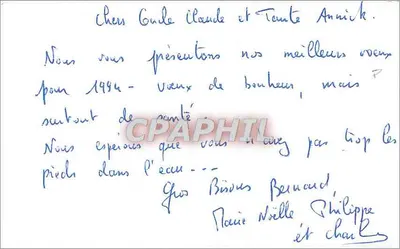 Chers Oncle Claude et Tante Annick.
Nous vous présentons nos meilleurs voeux
pour 1994 - voeux de bonheur, mais
surtout de santé
CPAPHIL
Nous esperons que vous n'avez pas trop les
pieds dans l'eau ---
Gros Bisous Bernard,
Marie Noëlle Philippe
et Charles